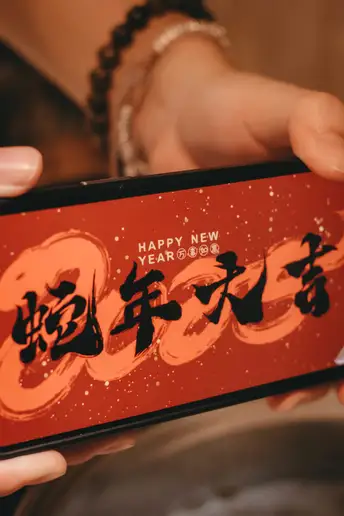 HAPPY NEW
YEAR
蛇年大吉